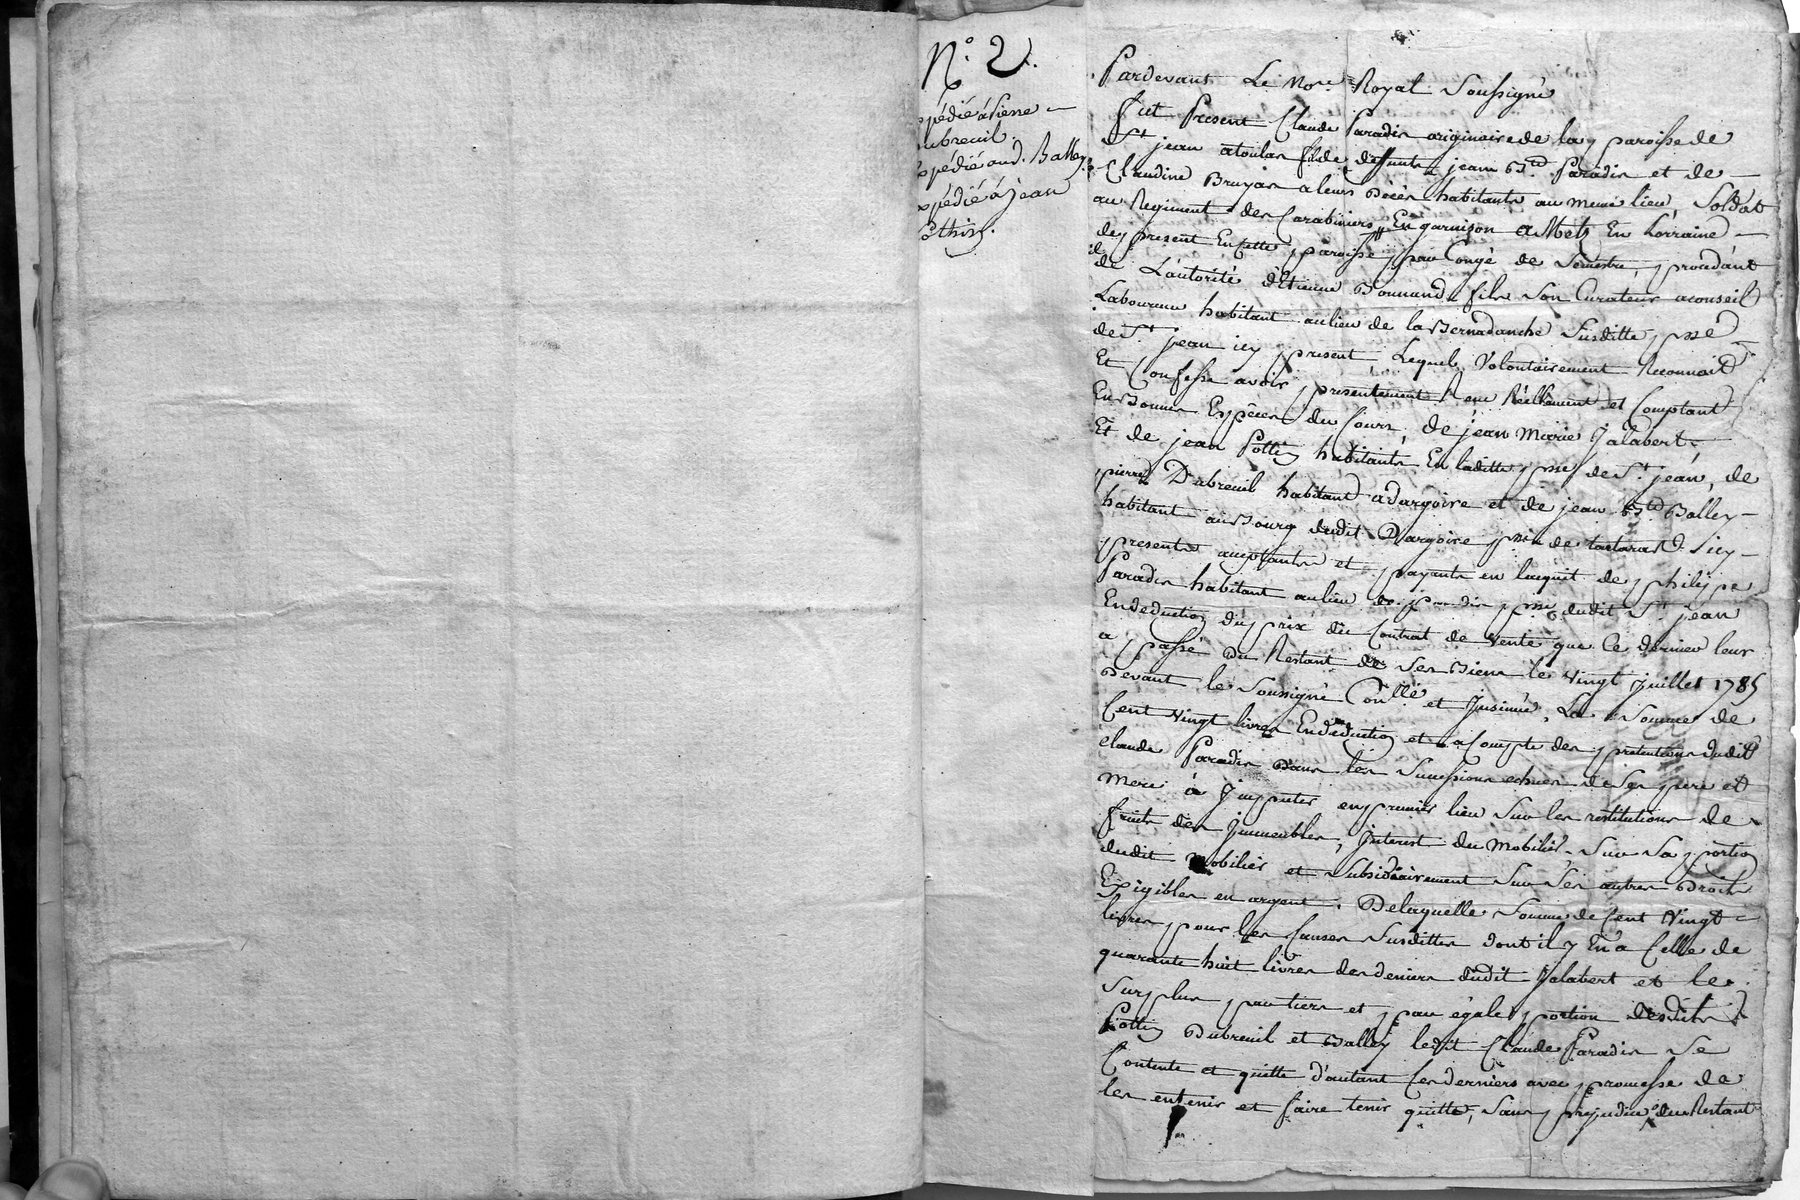 N.o 2.
pédié à Pierre
ubreuil.
pédié aud. Balley
pédié à jean
Pothin.
Pardevant Le No.re Royal Soussigné
fut Present Claude Paradis originaire de la paroisse de
St jean atoulas fils de deffunts jean Bte. Paradis et de
Claudine Bruyas a leurs decès habitants au meme lieu, Soldat
au Regiment des Carabiniers En garnison a Metz En Lorraine
de present En cette paroisse par Congé de Semestre, procédant
de L'autorité d'Etienne Bonnand fils Son Curateur a conseil
Laboureur habitant au lieu de la Bernadanche Susditte psse
de St. jean icy present, Lequel Volontairement Reconnait
Et Confesse avoir presentement Reçu Réellement et Comptant
En Bonnes Especes du Cours, de jean Marie Jalabert,
Et de jean Pottin habitants En laditte psse de St. jean, de
pierre Dubreuil habitant a dargoire et de jean Bte Balley
habitant au Bourg dudit Dargoire psse de tartaras icy
presents acceptants et payants en l'acquit de philippe
Paradis habitant au lieu de paradis psse dudit St jean
En deduction du prix du Contrat de Vente que Ce dernier leur
a passé du Restant de Ses Biens le Vingt juillet 1785
Devant le Soussigné Con.llé et Insinué, La Somme de
Cent Vingt livres En deduction et a Compte des pretentions dudit
claude Paradis Dans les Successions echues de Ses pere et
Mere à Imputer en premier lieu Sur les restitutions de
fruits des Immeubles, Interest du Mobilier, Sur Sa portion
dudit Mobilier et Subsidiairement Sur Ses autres Droits
Exigibles en argent. De laquelle Somme de Cent Vingt
livres pour les Causes Susdittes dont il y En a Celle de
quarante huit livres des deniers dudit Jalabert et le
Surplus par tiers et par égale portion desdits
Pottin Dubreuil et Balley ledit Claude Paradis Se
Contente et quitte d'autant Ces derniers avec promesse de
les en tenir et faire tenir quitte, Sans prejudice du Restant